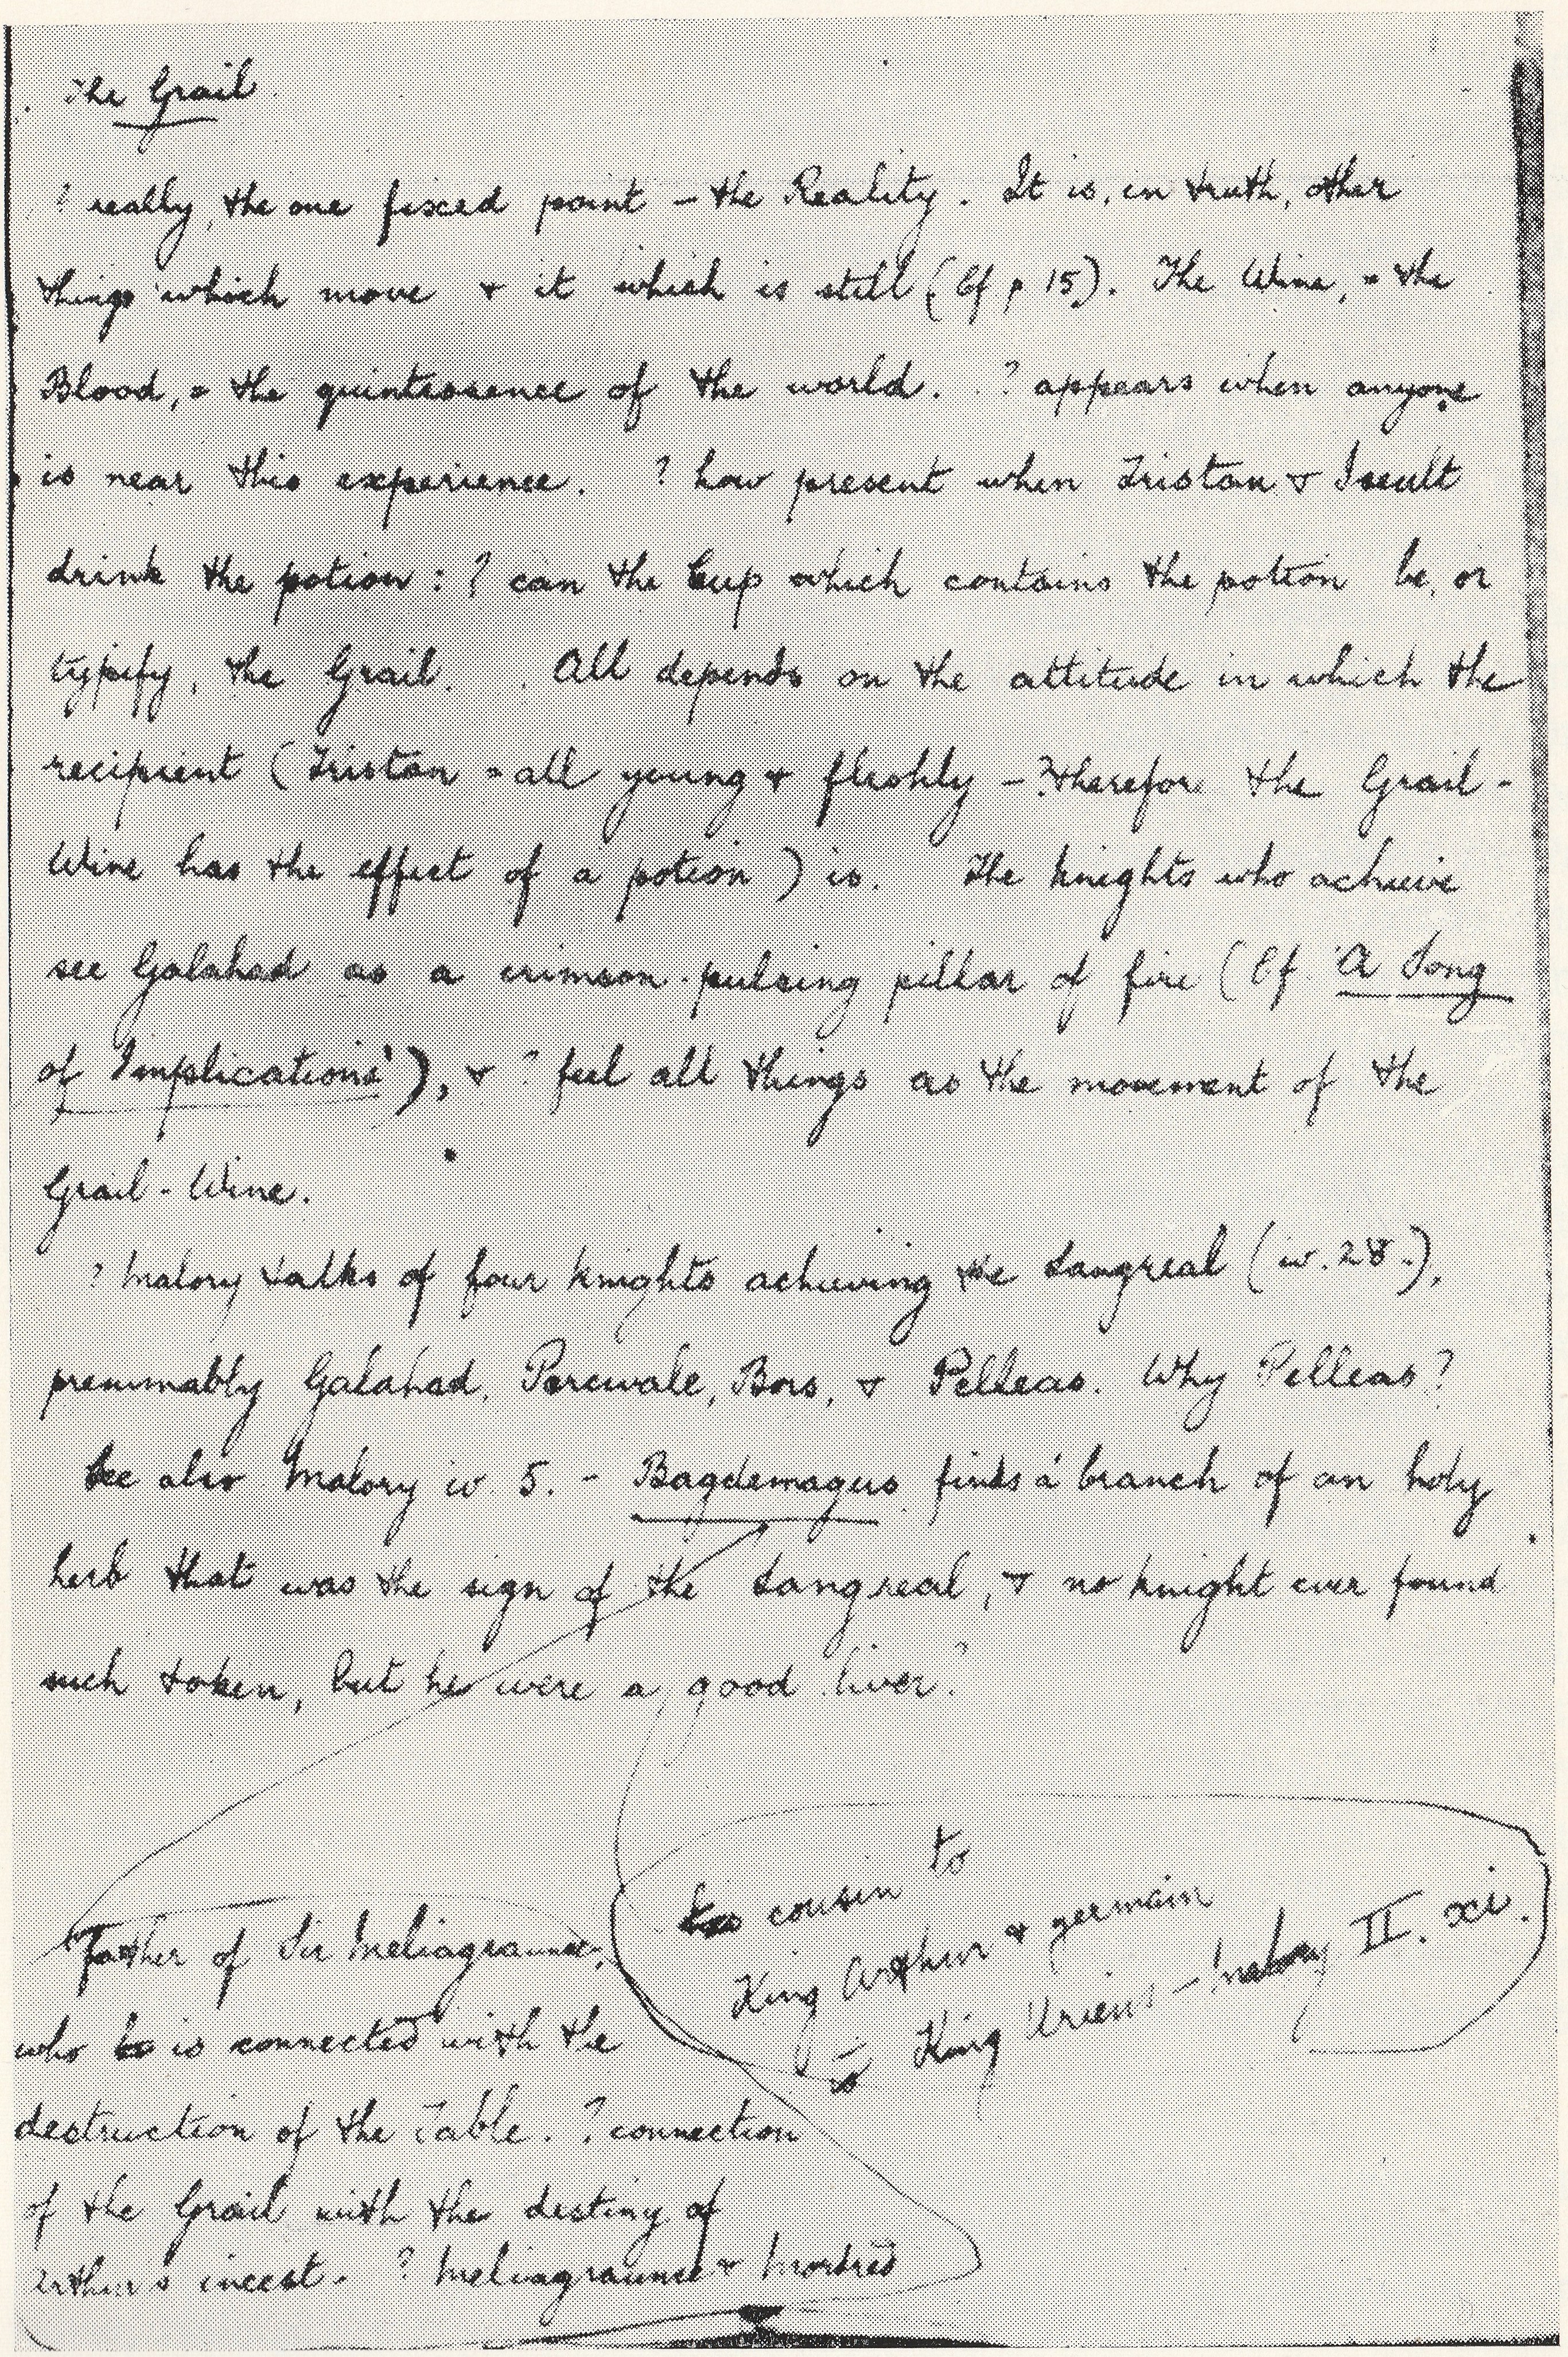 The Grail.
? really, the one fixed point – the Reality. It is, in truth, other
things which move & it which is still (Cf p 15). The Wine, = the
Blood, = the quintessence of the world. ? appears when anyone
is near this experience. ? how present when Tristan & Iseult
drink the potion: ? can the Cup which contains the potion be, or
typify, the Grail. All depends on the attitude in which the
recipient (Tristan = all young & fleshly – ?therefore the Grail-
Wine has the effect of a potion) is. The knights who achieve
see Galahad as a crimson-pulsing pillar of fire (Cf 'A Song
of Implications'), & ? feel all things as the movement of the
Grail-Wine.
? Malory talks of four knights achieving the Sangreal (iv. 28.),
presumably Galahad, Percivale, Bors, & Pelleas. Why Pelleas?
See also Malory iv 5. – Bagdemagus finds 'a branch of an holy
herb that was the sign of the Sangreal, & no knight ever found
such token, but he were a good liver.'
to
cousin
King Arthur & germain
to King Uriens – Malory II. xi.
Father of Sir Meliagraunce,
who is connected with the
destruction of the Table. ? connection
of the Grail with the destiny of
Arthur's incest. ? Meliagraunce & Mordred